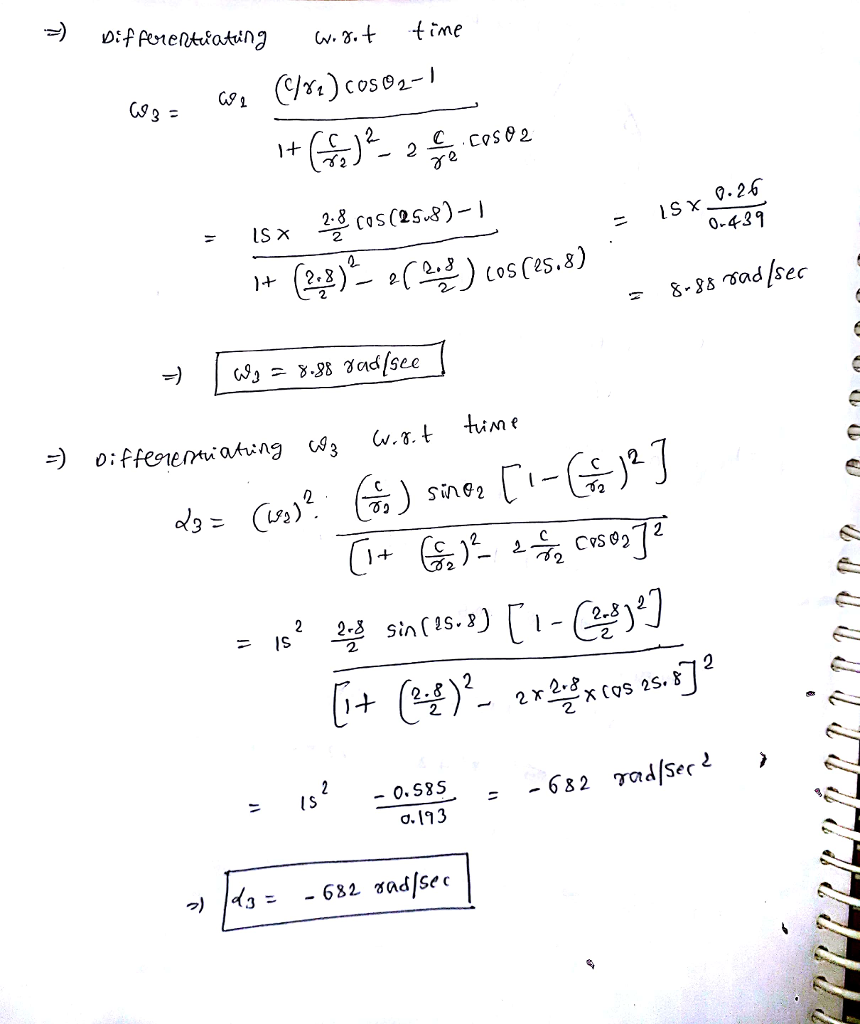 ⇒) Differentiating w.r.t time
ω3 = ω2 (c/r2) cosθ2-1 / 1+(c/r2)² - 2 c/r2 . cosθ2
= 15 x 2.8/2 cos(25.8)-1 / 1+(2.8/2)² - 2(2.8/2) cos(25.8) = 15 x 0.26/0.439
= 8.88 rad/sec
⇒) ω3 = 8.88 rad/sec
⇒) Differentiating ω3 w.r.t time
α3 = (ω2)². (c/r2) sinθ2 [1-(c/r2)²] / [1+ (c/r2)² - 2 c/r2 cosθ2]²
= 15² 2.8/2 sin(25.8) [1-(2.8/2)²] / [1+ (2.8/2)² - 2x 2.8/2 x cos 25.8]²
= 15² -0.585/0.193 = -682 rad/sec2
⇒) α3 = -682 rad/sec